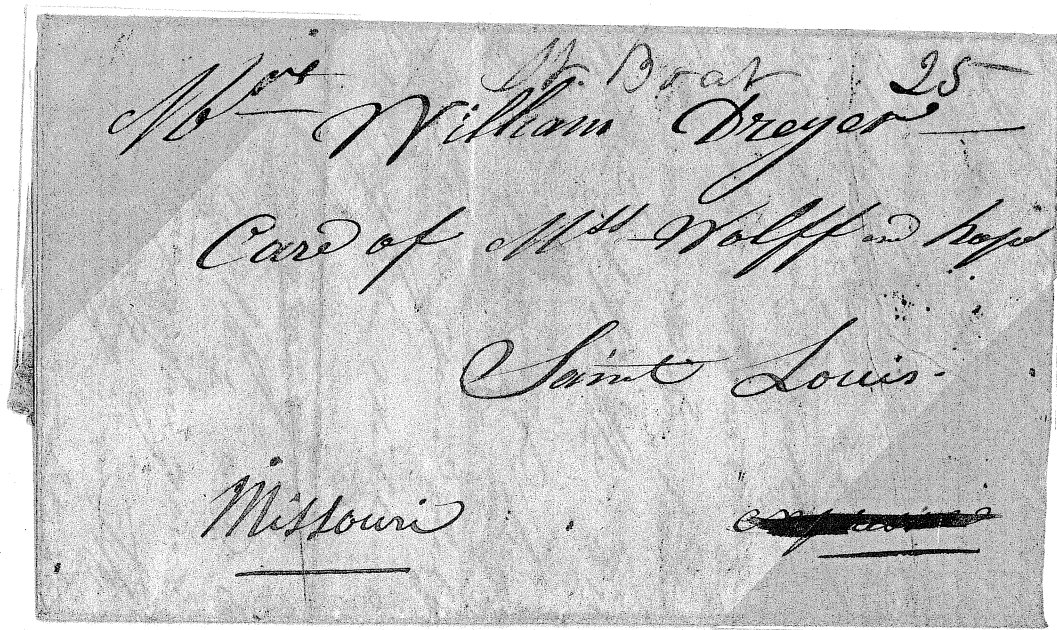 St. Boat 25
Mr William Dreyer
Care of Mss Wolff and hope
Saint Louis.
Missouri